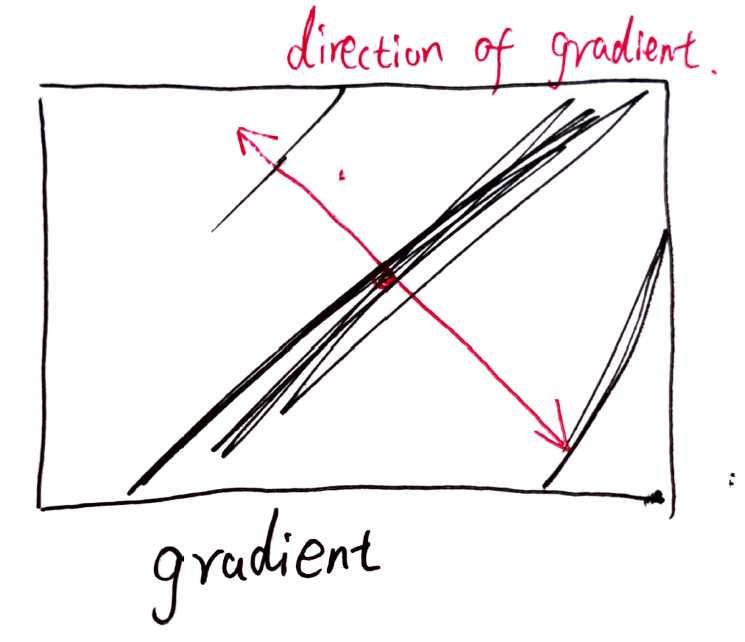 direction of gradient.
gradient